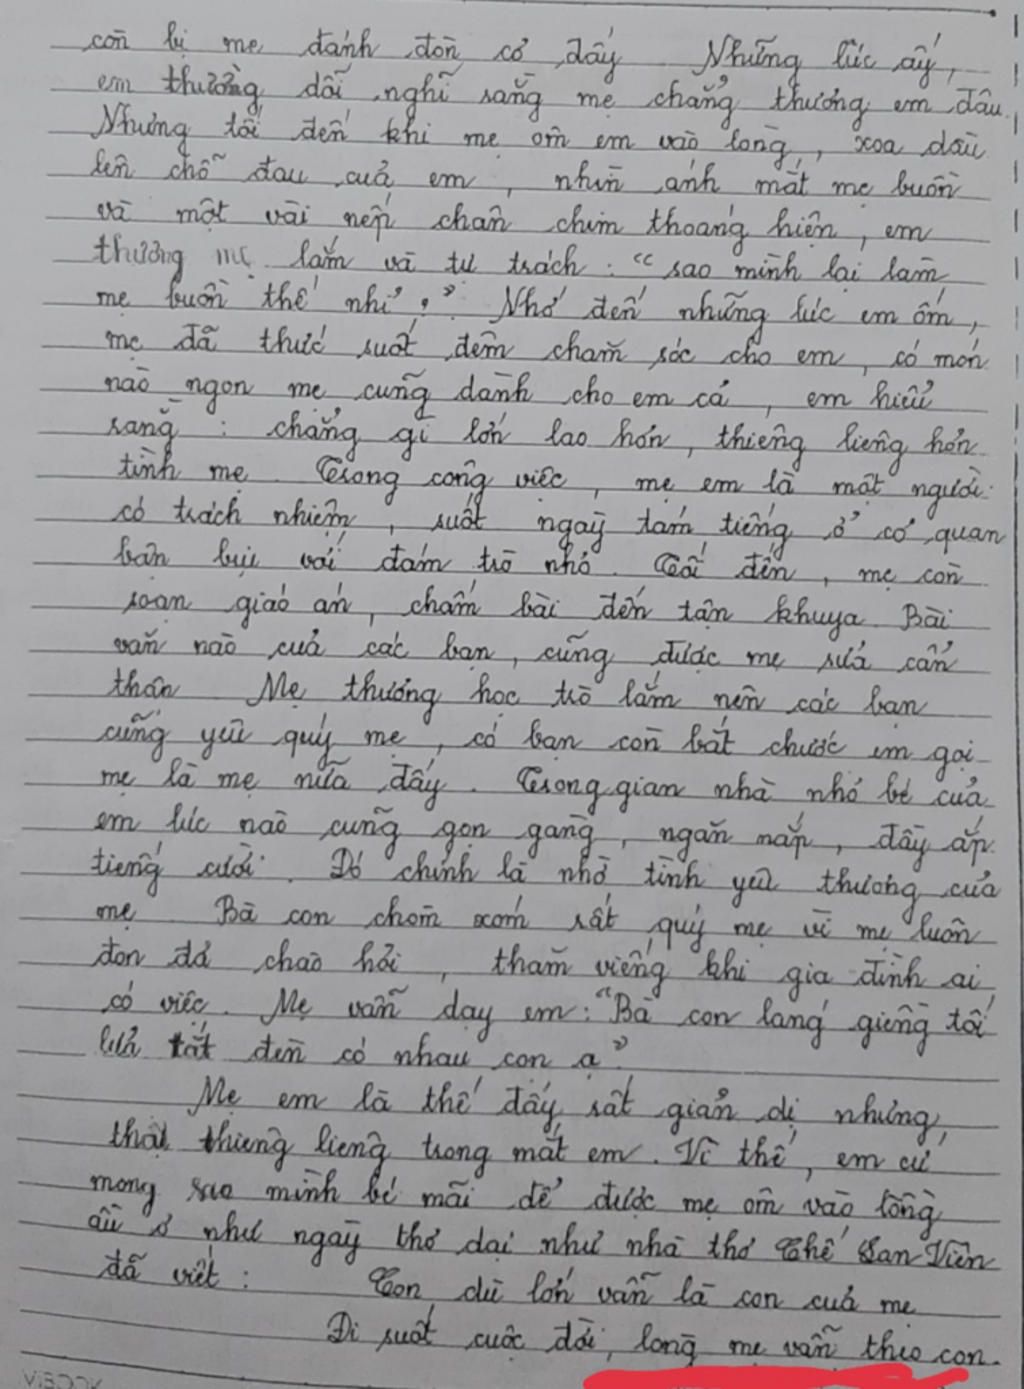 còn bị mẹ đánh đòn cơ đấy. Những lúc ấy,
em thường dỗi nghĩ rằng mẹ chẳng thương em đâu.
Nhưng tối đến khi mẹ ôm em vào lòng, xoa dầu
lên chỗ đau của em, nhìn ánh mắt mẹ buồn
và một vài nếp chân chim thoáng hiện, em
thương mẹ lắm và tự trách: "sao mình lại làm
mẹ buồn thế nhỉ?". Nhớ đến những lúc em ốm,
mẹ đã thức suốt đêm chăm sóc cho em, có món
nào ngon mẹ cũng dành cho em cả, em hiểu
rằng: chẳng gì lớn lao hơn, thiêng liêng hơn
tình mẹ. Trong công việc, mẹ em là một người
có trách nhiệm, suốt ngày tám tiếng ở cơ quan
bận bịu với đám trò nhỏ. Tối đến, mẹ còn
soạn giáo án, chấm bài đến tận khuya. Bài
văn nào của các bạn, cũng được mẹ sửa cẩn
thận. Mẹ thương học trò lắm nên các bạn
cũng yêu quý mẹ, có bạn còn bắt chước em gọi
mẹ là mẹ nữa đấy. Trong gian nhà nhỏ bé của
em lúc nào cũng gọn gàng, ngăn nắp, đầy ắp
tiếng cười. Đó chính là nhờ tình yêu thương của
mẹ. Bà con chòm xóm rất quý mẹ vì mẹ luôn
đon đả chào hỏi, thăm viếng khi gia đình ai
có việc. Mẹ vẫn dạy em: "Bà con láng giềng tối
lửa tắt đèn có nhau con ạ".
Mẹ em là thế đấy, rất giản dị nhưng,
thật thiêng liêng trong mắt em. Vì thế, em cứ
mong sao mình bé mãi để được mẹ ôm vào lòng
âu ơ như ngày thơ dại như nhà thơ Chế Lan Viên
đã viết: Con dù lớn vẫn là con của mẹ
Đi suốt cuộc đời, lòng mẹ vẫn theo con.